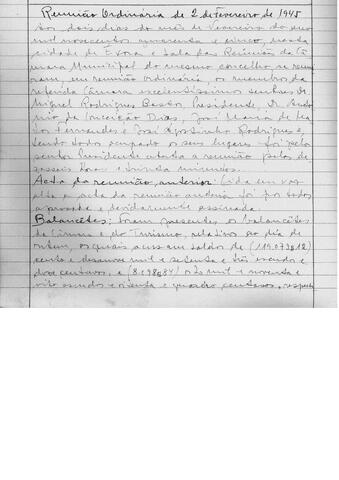 Reunião Ordinária de 2 de Fevereiro de 1945
Aos dois dias do mês de Fevereiro do ano
mil novecentos quarenta e cinco, nesta
cidade de Évora e Sala das Reuniões da Câ
mara Municipal do mesmo concelho se reuni
ram, em reunião ordinária, os membros da
referida Câmara excelentíssimos senhores Dr.
Miguel Rodrigues Bastos, Presidente, Dr. António
da Conceição Dias, José Maria de
Fernandes e José Agostinho Rodrigues e,
tendo todos ocupado os seus lugares foi pelo
senhor Presidente aberta a reunião pelas de
zasseis horas e trinta minutos.
Acta da reunião anterior: Lida em voz
alta a acta da reunião anterior foi por todos
aprovada e devidamente assinada.
Balancêtes: Foram presentes os balancêtes
da Câmara e do Turismo, relativos ao dia de
ontem, os quais acusam saldos de (119.073$12)
cento e dezanove mil e setenta e três escudos e
doze centavos, e (8.098$84) oito mil e noventa e
oito escudos e oitenta e quatro centavos, respecti